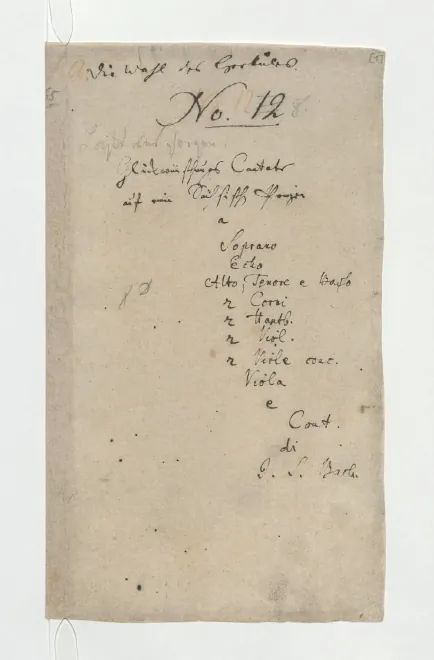 Die Wahl des Herkules.
No. 12
Laßt uns sorgen.
Glückwünschungs Cantate
auf einen Sächsisch Prinzen
a
Soprano
Echo
Alto, Tenore e Basso
2 Corni
2 Hautb.
2 Viol.
2 Viole conc.
Viola
e
Cont.
di
J. S. Bach.